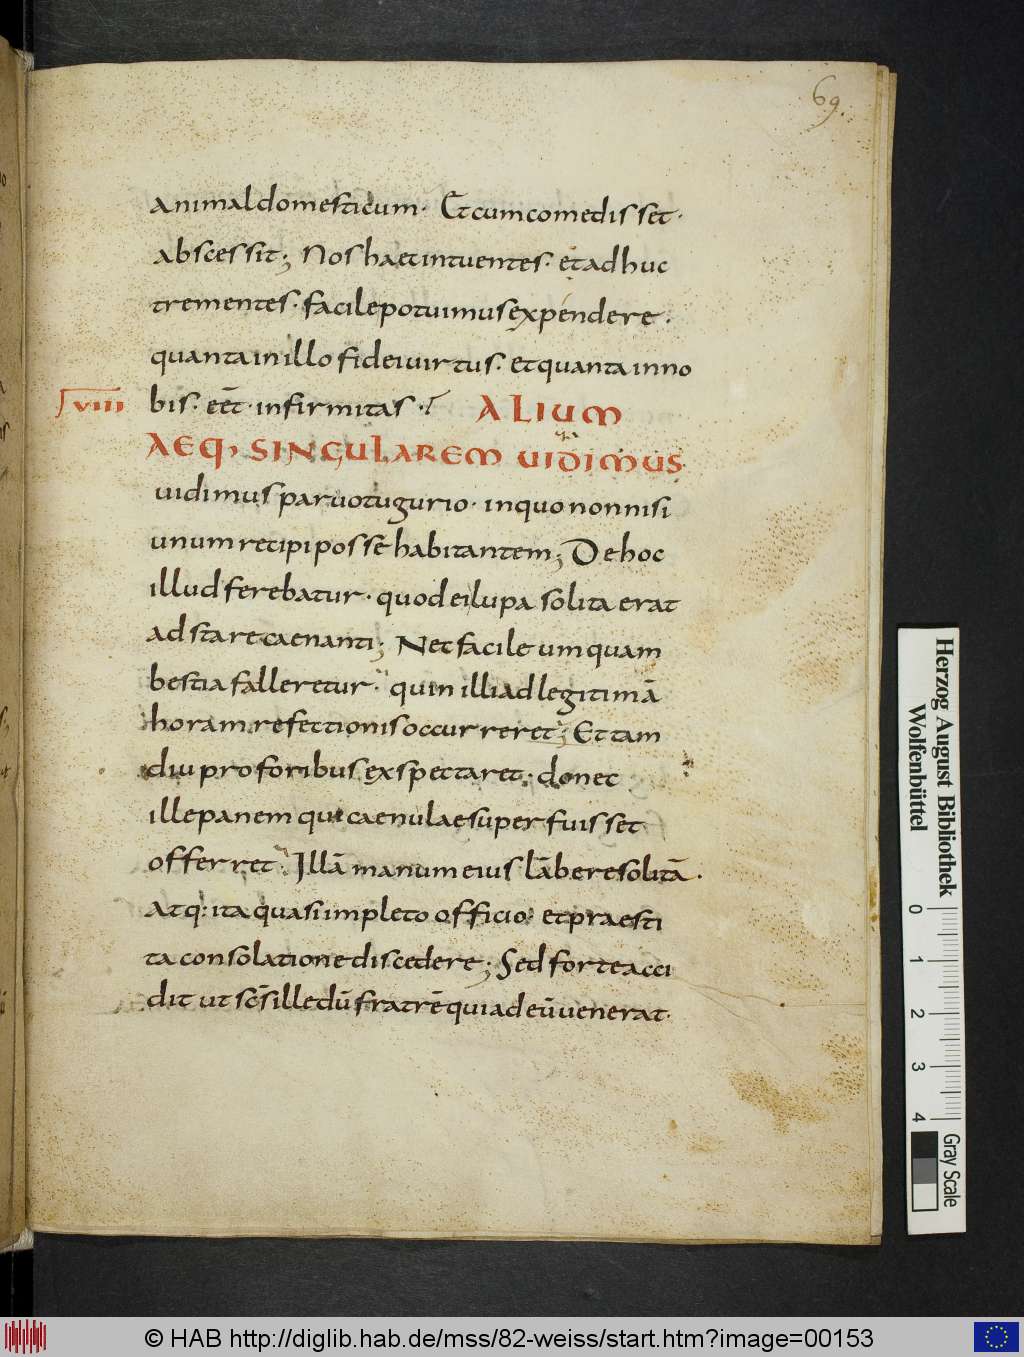 69.
animal domesticum· Et cum comedisset·
abscessit; Nos haec intuentes· et adhuc
trementes· facile potuimus expendere·
quanta in illo fidei virtus· et quanta in no
VIIII bis· eēt· infirmitas·? ALIUM
AEQ, SINGULAREM UIDIMUS
uidimus paruo tugurio· in quo non nisi
unum recipi possē habitantem; De hoc
illud ferebatur· quod ei lupa solita erat
adstare caenanti; Nec facile umquam
bestia falleretur· quin illi ad legitimā
horam refectionis occurreret; Et tam
diu pro foribus exspectaret· donec
ille panem qui caenulae superfuisset
offerret· Illā manum eius lābere solitā·
Atq: ita quasi impleto officio· et praesti
ta consolatione discedere; Sed forte acci
dit ut scs̄ ille dū fratrē qui ad eū venerat·
Herzog August Bibliothek
Wolfenbüttel
0 1 2 3 4
Gray Scale
© HAB http://diglib.hab.de/mss/82-weiss/start.htm?image=00153